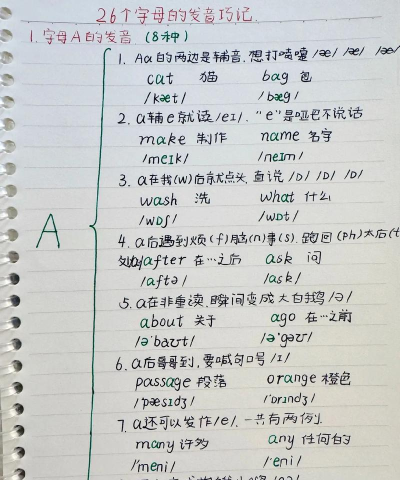 26个字母的发音巧记.
1. 字母A的发音 (8种)
A
1. Aa的两边是辅音, 想打喷嚏 /æ/ /æ/ /æ/
cat 猫 bag 包
/kæt/ /bæg/
2. a辅e就读/eɪ/. "e"是哑巴不说话
make 制作 name 名字
/meɪk/ /neɪm/
3. a在我(w)后就点头, 直说 /ɒ/ /ɒ/ /ɒ/
wash 洗 what 什么
/wɒʃ/ /wɒt/
4. a后遇到烦(f)脑(n)事(s). 跑回(ph)太后(t
after 在…之后 ask 问
/aftə/ /ask/
5. a在非重读, 瞬间变成大白鹅/ə/
about 关于 ago 在…之前
/ə'baʊt/ /ə'gəʊ/
6. a后哥哥到, 要喊句口号 /ɪ/
passage 段落 orange 橙色
/'pæsɪdʒ/ /'ɒrɪndʒ/
7. a还可以发作/e/. 一共有两例.
many 许多 any 任何的
/'meni/ /'eni/